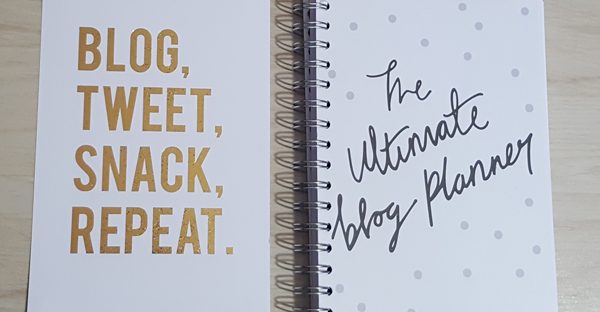 BLOG,
TWEET,
SNACK,
REPEAT.
The
Ultimate
blog planner